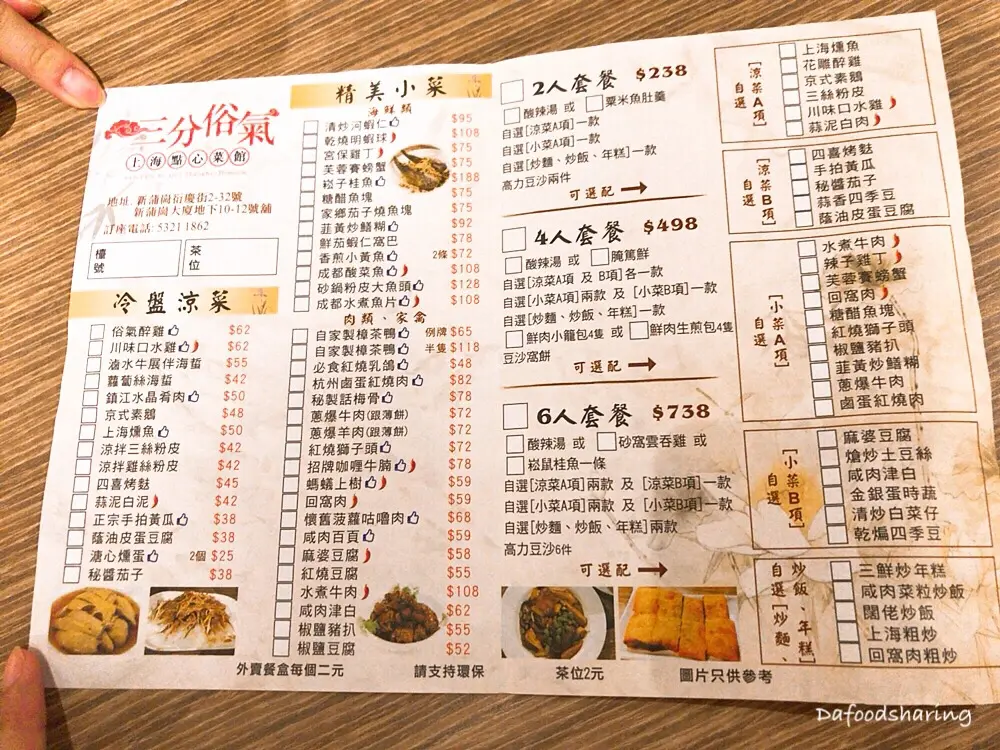 三分俗氣
上海點心菜館
地址: 新蒲崗衍慶街2-32號
新蒲崗大廈地下10-12號舖
訂座電話: 5321 1862
檯號
茶位
冷盤涼菜
俗氣醉雞 $62
川味口水雞 $62
滷水牛展伴海蜇 $55
蘿蔔絲海蜇 $42
鎮江水晶肴肉 $50
京式素鵝 $48
上海燻魚 $50
涼拌三絲粉皮 $42
涼拌雞絲粉皮 $42
四喜烤麩 $45
蒜泥白泥 $42
正宗手拍黃瓜 $38
蔭油皮蛋豆腐 $38
溏心燻蛋 2個 $25
秘醬茄子 $38
精美小菜
海鮮類
清炒河蝦仁 $95
乾燒明蝦球 $108
宮保雞丁 $75
芙蓉賽螃蟹 $75
崧子桂魚 $188
糖醋魚塊 $75
家鄉茄子燒魚塊 $75
韮黃炒鱔糊 $92
鮮茄蝦仁窩巴 $78
香煎小黃魚 2條 $72
成都酸菜魚 $108
砂鍋粉皮大魚頭 $128
成都水煮魚片 $108
肉類、家禽
自家製樟茶鴨 例牌 $65
自家製樟茶鴨 半隻 $118
必食紅燒乳鴿 $48
杭州鹵蛋紅燒肉 $82
秘製話梅骨 $78
蔥爆牛肉(跟薄餅) $72
蔥爆羊肉(跟薄餅) $72
紅燒獅子頭 $72
招牌咖喱牛腩 $78
螞蟻上樹 $59
回窩肉 $59
懷舊菠蘿咕嚕肉 $68
咸肉百頁 $59
麻婆豆腐 $58
紅燒豆腐 $55
水煮牛肉 $108
咸肉津白 $62
椒鹽豬扒 $55
椒鹽豆腐 $52
2人套餐 $238
酸辣湯 或 粟米魚肚羹
自選[涼菜A項]一款
自選[小菜A項]一款
自選[炒麵、炒飯、年糕]一款
高力豆沙兩件
可選配
4人套餐 $498
酸辣湯 或 腌篤鮮
自選[涼菜A項 及 B項]各一款
自選[小菜A項]兩款 及 [小菜B項]一款
自選[炒麵、炒飯、年糕]一款
鮮肉小籠包4隻 或 鮮肉生煎包4隻
豆沙窩餅
可選配
6人套餐 $738
酸辣湯 或 砂窩雲吞雞 或
崧鼠桂魚一條
自選[涼菜A項]兩款 及 [涼菜B項]一款
自選[小菜A項]兩款 及 [小菜B項]一款
自選[炒麵、炒飯、年糕]兩款
高力豆沙6件
可選配
自選[涼菜A項]
上海燻魚
花雕醉雞
京式素鵝
三絲粉皮
川味口水雞
蒜泥白肉
自選[涼菜B項]
四喜烤麩
手拍黃瓜
秘醬茄子
蒜香四季豆
蔭油皮蛋豆腐
自選[小菜A項]
水煮牛肉
辣子雞丁
芙蓉賽螃蟹
回窩肉
糖醋魚塊
紅燒獅子頭
椒鹽豬扒
韮黃炒鱔糊
蔥爆牛肉
鹵蛋紅燒肉
自選[小菜B項]
麻婆豆腐
熗炒土豆絲
咸肉津白
金銀蛋時蔬
清炒白菜仔
乾煸四季豆
自選[炒麵、炒飯、年糕]
三鮮炒年糕
咸肉菜粒炒飯
闊佬炒飯
上海粗炒
回窩肉粗炒
外賣餐盒每個二元
請支持環保
茶位2元
圖片只供參考
Dafoodsharing